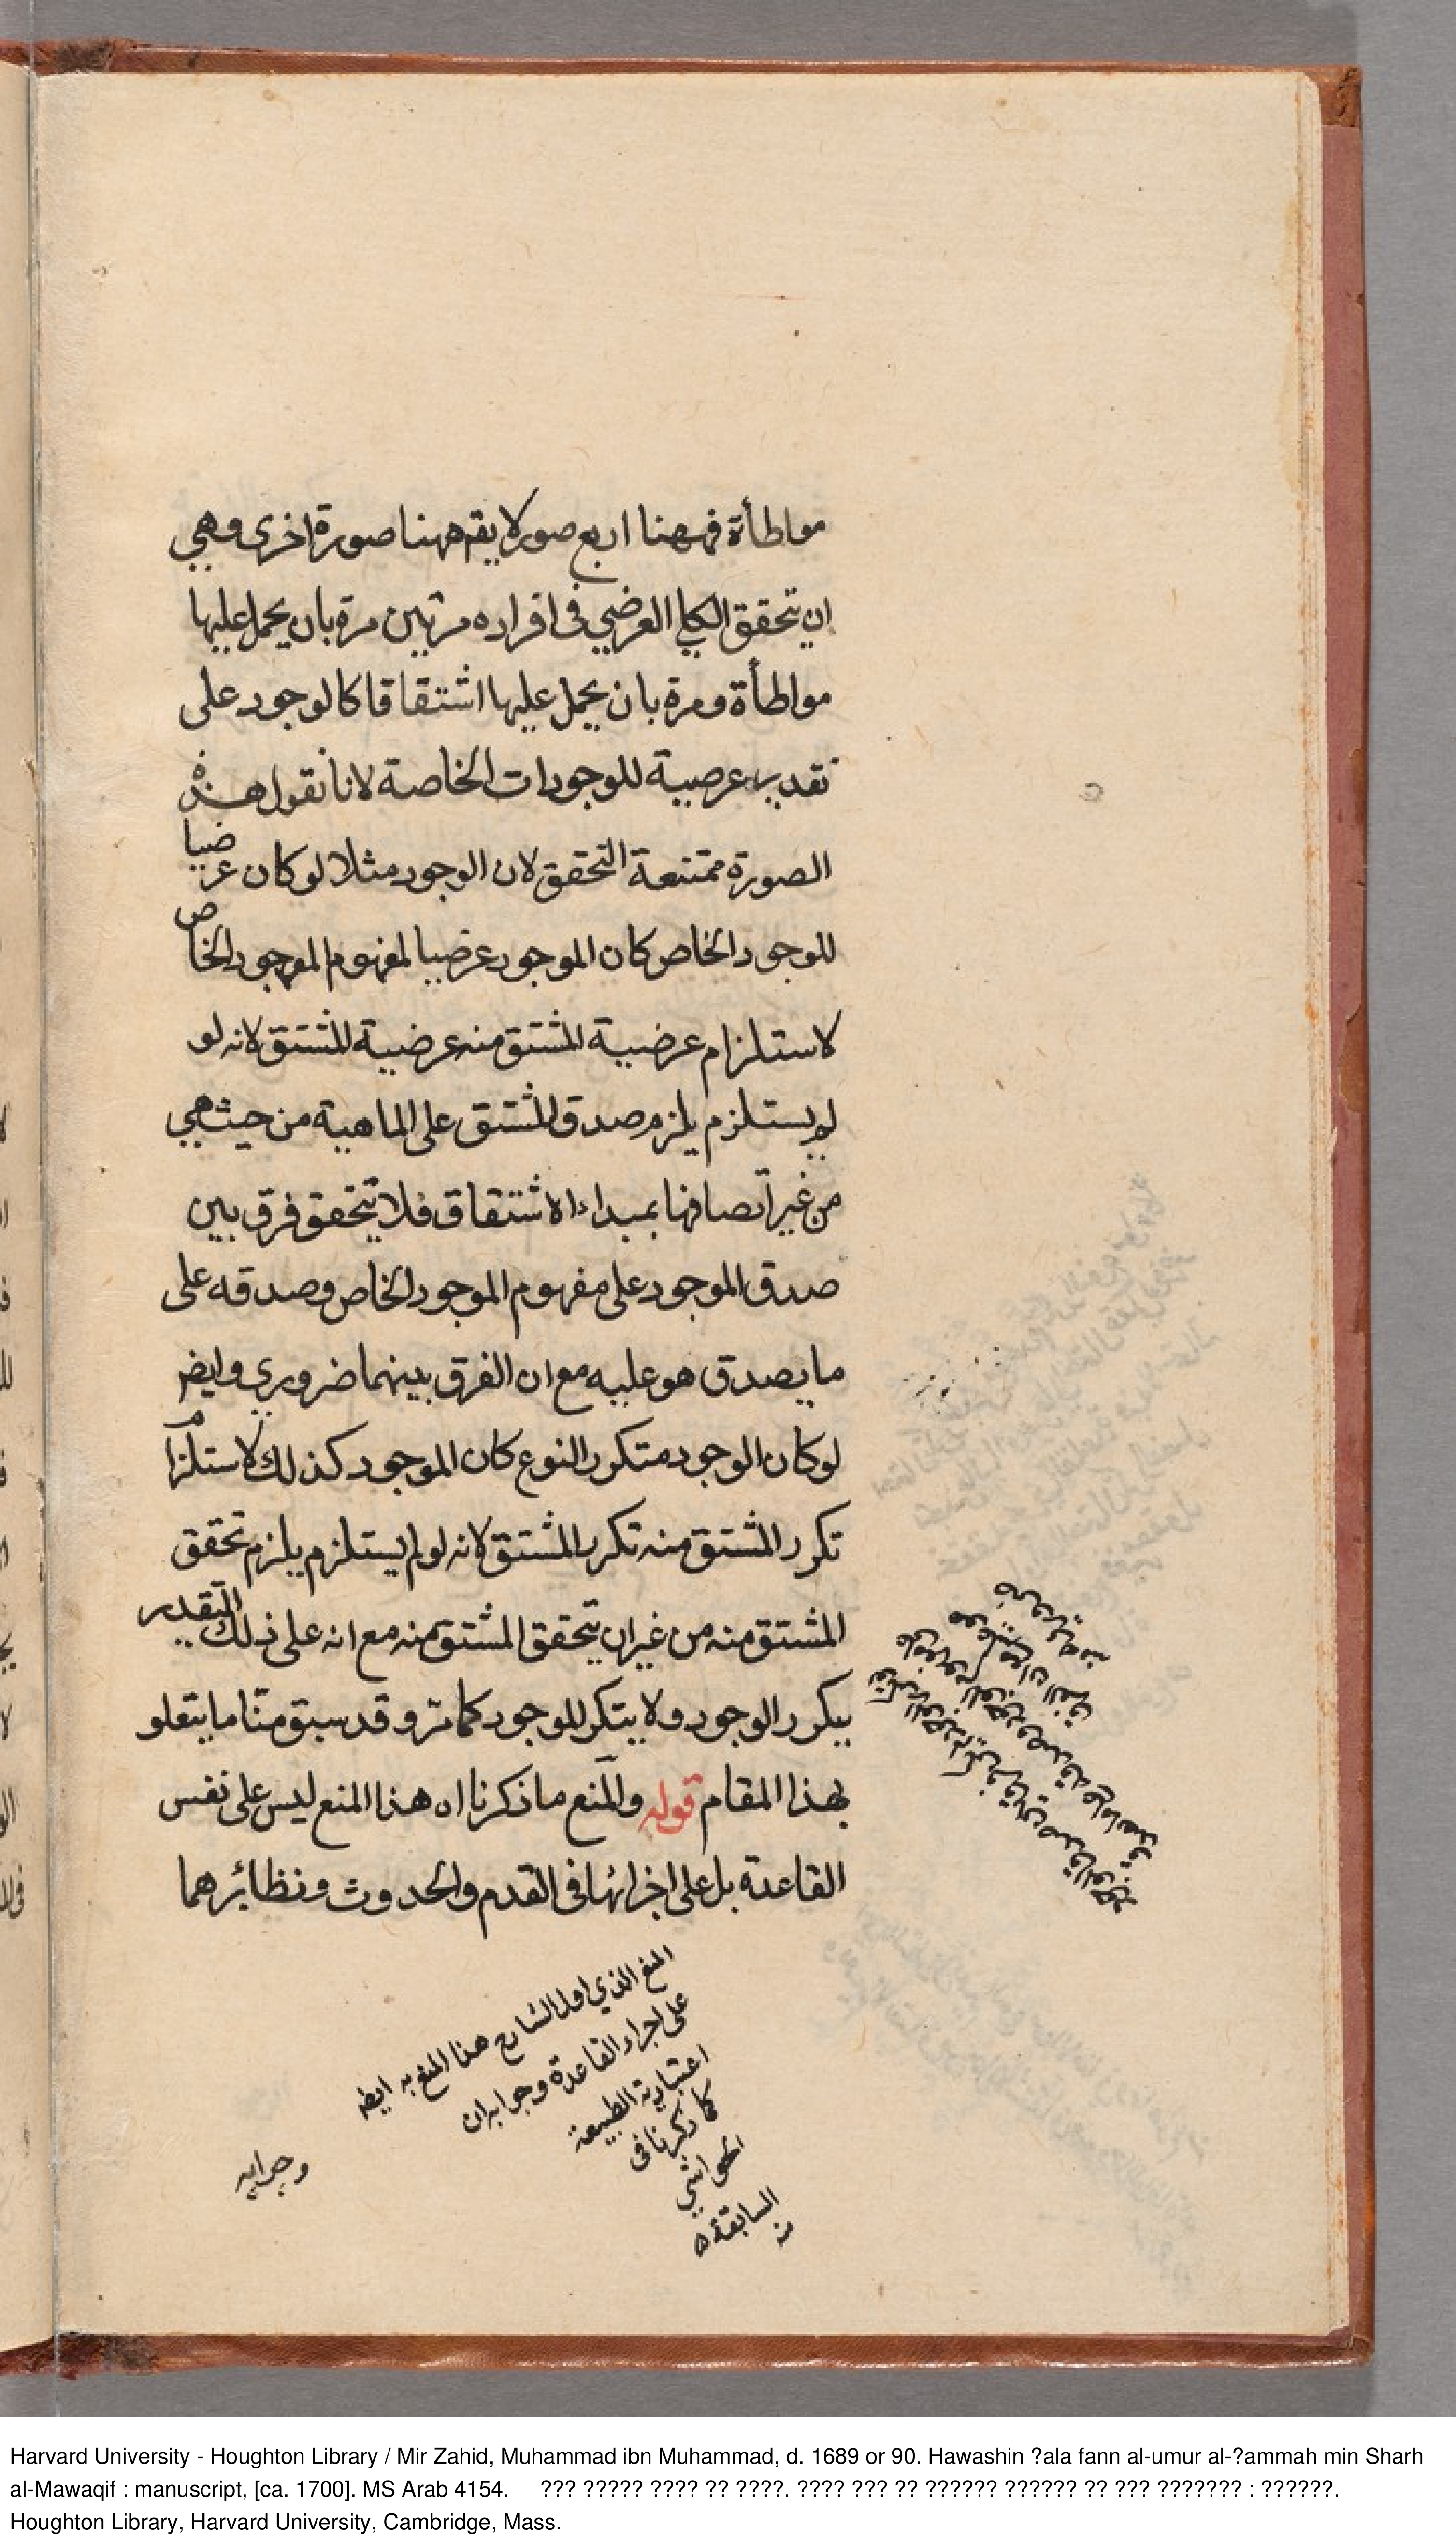 مواطأة فههنا اربع صور لا يقم ههنا صورة اخرى وهي
ان تحقق الكلي العرضي في افراده مرتين مرة بان يحمل عليها
مواطأة ومرة بان يحمل عليها اشتقاقا كالوجود على
تقدير عرضية للوجودات الخاصة لانا نقول هذه
الصورة ممتنعة التحقق لان الوجود مثلا لو كان عرضيا
للوجود الخاص كان الموجود عرضيا لمفهوم الموجود الخاص
لاستلزام عرضية المشتق منه عرضية المشتق لانه لو
لم يستلزم يلزم صدق المشتق على الماهية من حيث هي
من غير اتصافها بمبداء الاشتقاق فلا يتحقق فرق بين
صدق الموجود على مفهوم الموجود الخاص وصدقه على
ما يصدق هو عليه مع ان الفرق بينهما ضروري وايض
لو كان الوجود متكرر النوع كان الموجود كذلك لاستلزام
تكرر المشتق منه تكرر المشتق لانه لو لم يستلزم يلزم تحقق
المشتق منه من غير ان يتحقق المشتق منه مع انه على ذلك التقدير
يتكرر الوجود ولا يتكرر الموجود كما مر وقد سبق منا ما يتعلق
بهذا المقام قوله والمنع ما ذكرنا اه هذا المنع ليس على نفس
القاعدة بل على اجرائها في القدم والحدوث ونظائرهما
المنع الذي اورد الشارح هذا المنع به ايضا
على اجراء القاعدة وجوابه ان
اعتبارية الطبيعة
كما ذكرنا في
الحواشي
السابقة
منه
وجوابه
Harvard University - Houghton Library / Mir Zahid, Muhammad ibn Muhammad, d. 1689 or 90. Hawashin ?ala fann al-umur al-?ammah min Sharh
al-Mawaqif : manuscript, [ca. 1700]. MS Arab 4154. ??? ????? ???? ?? ????. ???? ??? ?? ?????? ?????? ?? ??? ??????? : ??????.
Houghton Library, Harvard University, Cambridge, Mass.